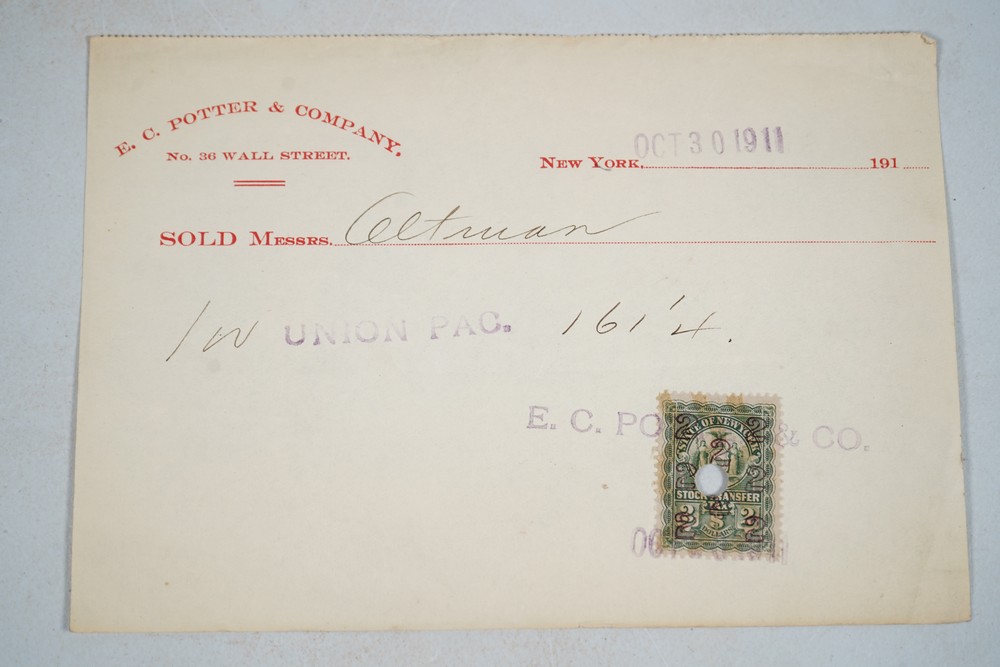 E. C. POTTER & COMPANY.
No. 36 WALL STREET.
OCT 30 1911
NEW YORK, 191
SOLD MESSRS. Altman
UNION PAC. 161 1/4.
E. C. PO & CO.
STATE OF NEW YORK
2 2
2
STOCK TRANSFER
TAX
2 $ 2
DOLLARS